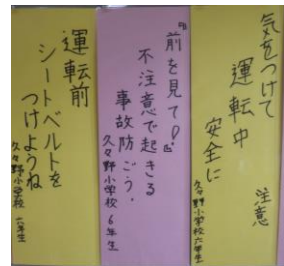 気をつけて
運転中
安全に
注意
久々野小学校六年生
『前を見て!』
不注意で起きる
事故防ごう。
久々野小学校6年生
運転前
シートベルトを
つけようね
久々野小学校 六年生